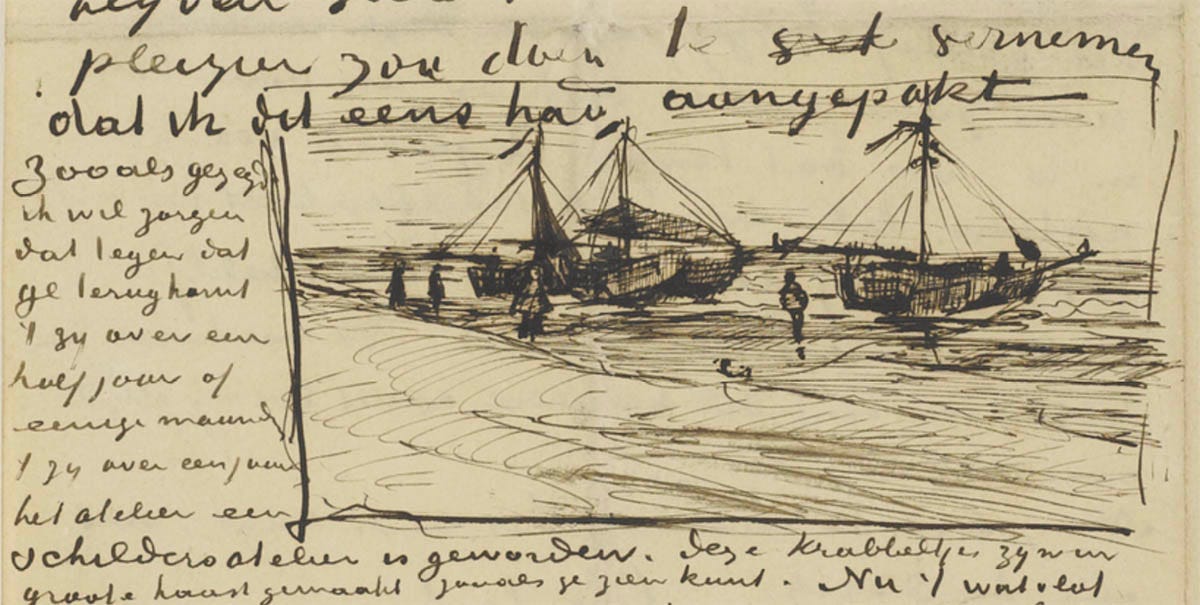 pleizier zou doen te vernemen
dat ik dit eens had aangepakt
Zooals gezegd
ik wil zorgen
dat tegen dat
ge terugkomt
't zij over een
half jaar of
eenige maand
't zij over een jaar
het atelier een
schildersatelier is geworden. Deze krabbeltjes zijn in
groote haast gemaakt zooals ge zien kunt. Nu 't wat vlot